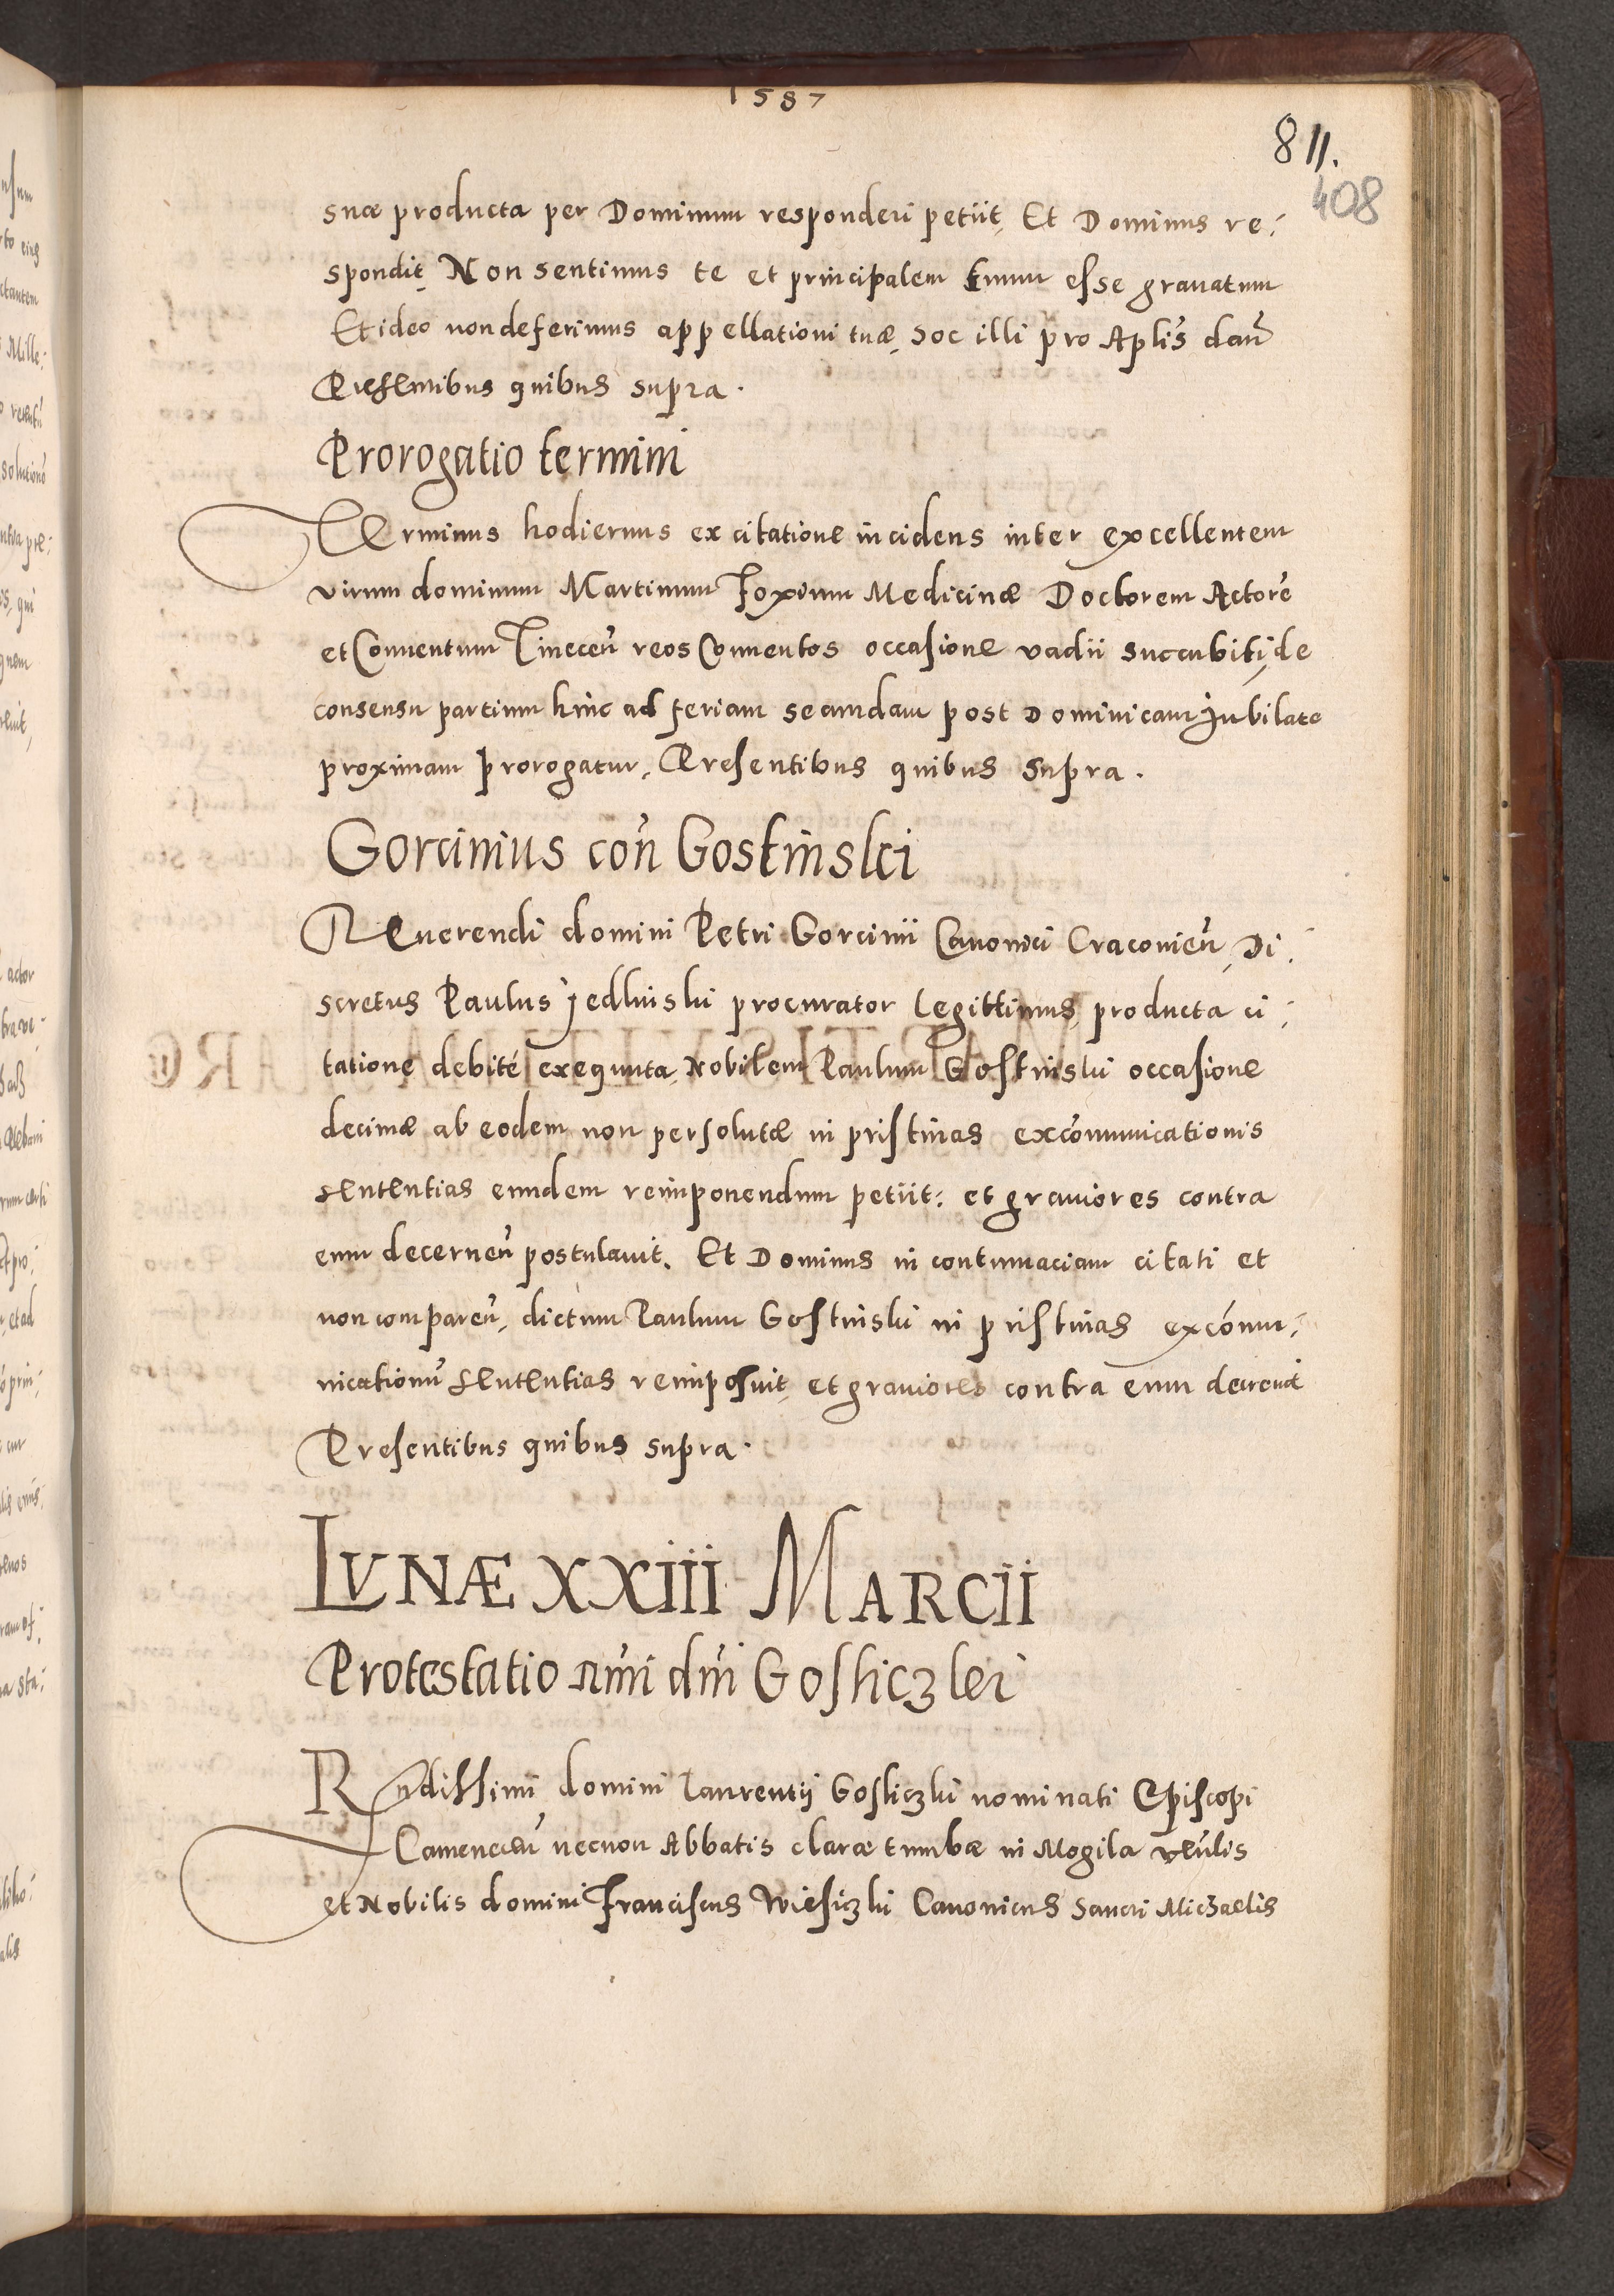 1587
811.
408
suæ producta per Dominum responderi petiit, Et Dominus re-
spondit, Non sentimus te et principalem tuum esse grauatum
Et ideo non deferimus appellationi tuæ, hoc illi pro Aplis dan
Præsentibus quibus supra.
Prorogatio termini
Terminus hodiernus ex citatione incidens inter excellentem
virum dominum Martinum Foxium Medicinæ Doctorem Actore
et Conuentum Tinecen reos Conuentos occasione vadii succubiti, de
consensu partium hinc ad feriam secundam post Dominicam Jubilate
proximam prorogatur, Presentibus quibus supra.
Gorcinius con Gostinski
Reuerendi domini Petri Gorcinii Canonici Cracouien, Di-
scretus Paulus Jedlinski procurator legittimus, producta ci-
tatione debité exequuta, Nobilem Paulum Gostinski occasione
decimæ ab eodem non persolutæ in pristinas excomunicationis
sententias eundem reimponendum petiit: et grauiores contra
eum decernen postulauit. Et Dominus in contumaciam citati et
non comparen, dictum Paulum Gostinski in pristinas excomu-
nicationu sententias reimposuit, et grauiores contra eum decreuit
Presentibus quibus supra.
LVNÆ XXIII MARCII
Protestatio Rmi dni Gosliczki
Rndissimi domini Laurentij Gosliczki nominati Episcopi
Camenecen necnon Abbatis claræ tumbæ in Mogila
et Nobilis domini Franciscus Wiesiczki Canonicus Sancti Michaelis